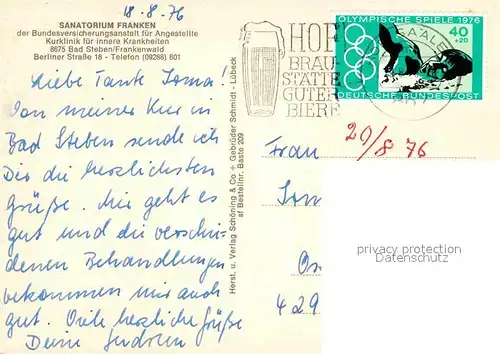 18.8.76
SANATORIUM FRANKEN
der Bundesversicherungsanstalt für Angestellte
Kurklinik für innere Krankheiten
8675 Bad Steben/Frankenwald
Berliner Straße 18 - Telefon (09288) 801
Liebe Tante Irma!
Von meiner Kur in
Bad Steben sende ich
Dir die herzlichsten
Grüße. Mir geht es
gut und die verschie-
denen Behandlungen
bekommen mir auch
gut. Viele herzliche Grüße
Deine Gudrun
Herst. u. Verlag Schöning & Co + Gebrüder Schmidt - Lübeck
Bestellnr. Baste 209
HOF
BRAU
STÄTTE
GUTER
BIERE
SAALE
OLYMPISCHE SPIELE 1976
40
+20
DEUTSCHE BUNDESPOST
20/8 76
Frau
Irm
privacy protection
Datenschutz
429